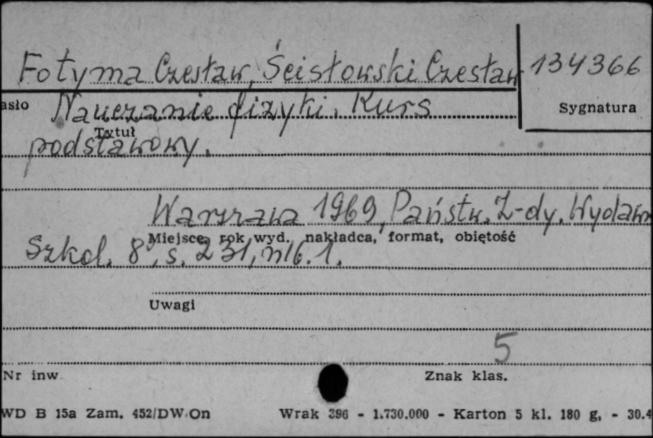 Fotyma Czesław, Ścisłowski Czesław 134366
asło Nauczanie fizyki. Kurs Sygnatura
Tytuł
podstawowy.
Warszawa 1969, Państw. Z-dy. Wydawn
Miejsce, rok wyd., nakładca, format, objętość
Szkol. 8°, s. 231, nlb. 1.
Uwagi
5
Nr inw. Znak klas.
WD B 15a Zam. 452/DW/On Wrak 396 - 1.730.000 - Karton 5 kl. 180 g. - 30.4